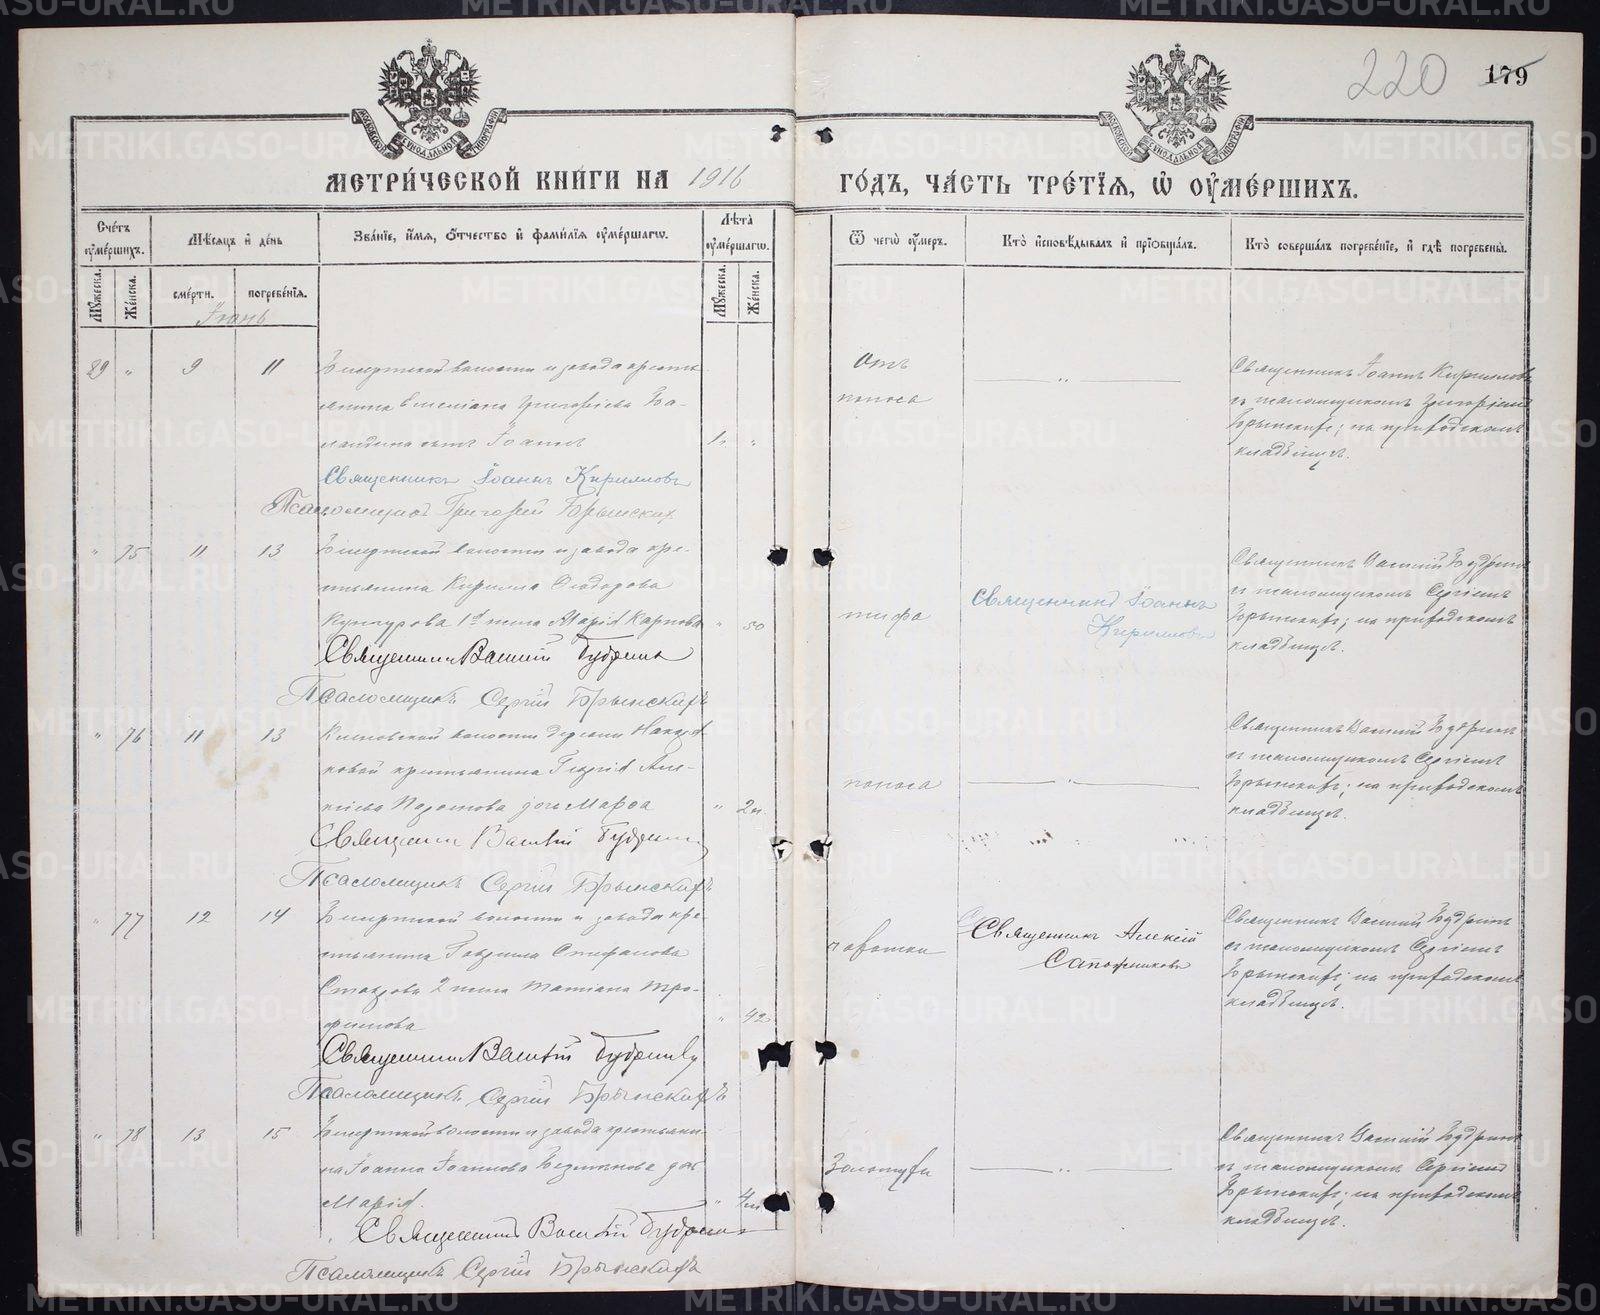 220 179
МЕТРИ́ЧЕСКОЙ КНИ́ГИ НА 1916 ГО́ДЪ, ЧА́СТЬ ТРЕ́ТЇѦ, Ѡ҆ ОУ҆МЕ́РШИХЪ.
Сче́тъ оу҆ме́ршихъ.
Мѣ́сѧцъ и҆ де́нь
Зва́нїе, и҆́мѧ, ѻ҆́тчество и҆ фами́лїѧ оу҆ме́ршагѡ.
Лѣ́та оу҆ме́ршагѡ.
Ѿ чегѡ̀ оу҆́меръ.
Кто̀ и҆сповѣ́дывалъ и҆ прїѡбща́лъ.
Кто̀ соверша́лъ погребе́нїе, и҆ гдѣ̀ погребены̀.
Мꙋ́жеска.
Же́нска.
сме́рти.
погребе́нїѧ.
Мꙋ́жеска.
Же́нска.
Іюнь
89 " 9 11
волости и завода кресть
янина Григоріева
сынъ Іоаннъ
1
Священникъ Іоаннъ Кирилловъ
Псаломщикъ Григорій Брынских
Отъ
поноса
Священникъ Іоаннъ Кирилловъ
съ псаломщикомъ Григоріемъ
Брынскихъ; на приходскомъ
кладбищѣ.
" 75 11 13
волости и завода кре-
стьянина Кирилла Ѳеодорова
Кунгурова жена Марія Карпова " 50
Священникъ Василій Будринъ
Псаломщикъ Сергій Брынскихъ
тифа
Священникъ Іоаннъ
Кирилловъ
Священникъ Василій Будринъ
съ псаломщикомъ Сергіемъ
Брынскихъ; на приходскомъ
кладбищѣ.
" 76 11 13
волости деревни
крестьянина Георгія
дочь Марѳа " 2 м.
Священникъ Василій Будринъ
Псаломщикъ Сергій Брынскихъ
поноса
Священникъ Василій Будринъ
съ псаломщикомъ Сергіемъ
Брынскихъ; на приходскомъ
кладбищѣ.
" 77 12 14
волости и завода кре-
стьянина Гавріила Стефанова
2 жена Татіана Тро-
фимова " 42
Священникъ Василій Будринъ
Псаломщикъ Сергій Брынскихъ
чахотки
Священникъ Алексій
Сапожниковъ
Священникъ Василій Будринъ
съ псаломщикомъ Сергіемъ
Брынскихъ; на приходскомъ
кладбищѣ.
" 78 13 15
волости и завода крестьяни-
на Іоанна Іоаннова дочь
Марія. " 4 м
Священникъ Василій Будринъ
Псаломщикъ Сергій Брынскихъ
Золотухи
Священникъ Василій Будринъ
съ псаломщикомъ Сергіемъ
Брынскихъ; на приходскомъ
кладбищѣ.
METRIKI.GASO-URAL.RU